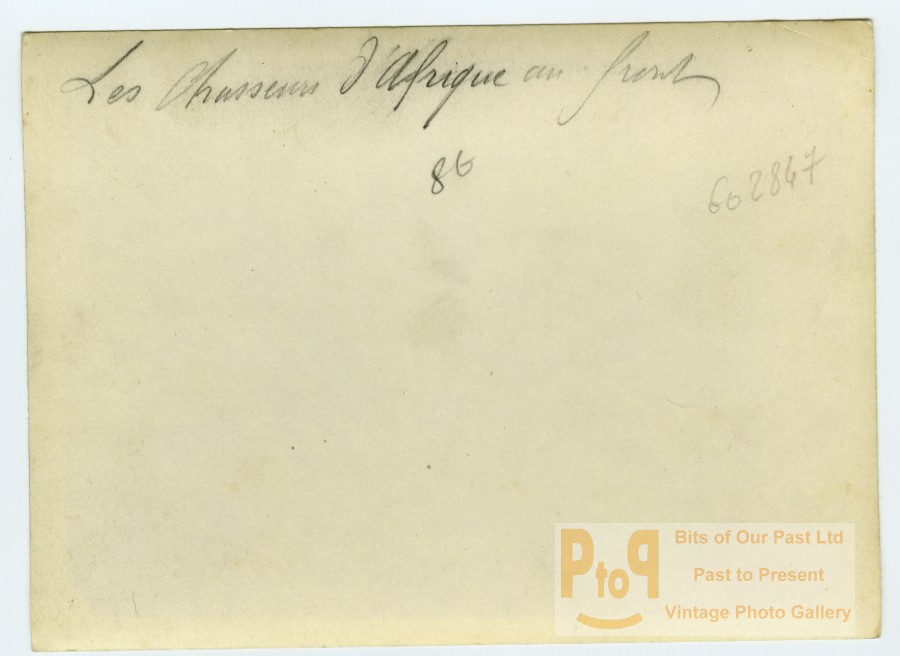 Les Chasseurs d'Afrique au front
86
602847
PtoP
Bits of Our Past Ltd
Past to Present
Vintage Photo Gallery